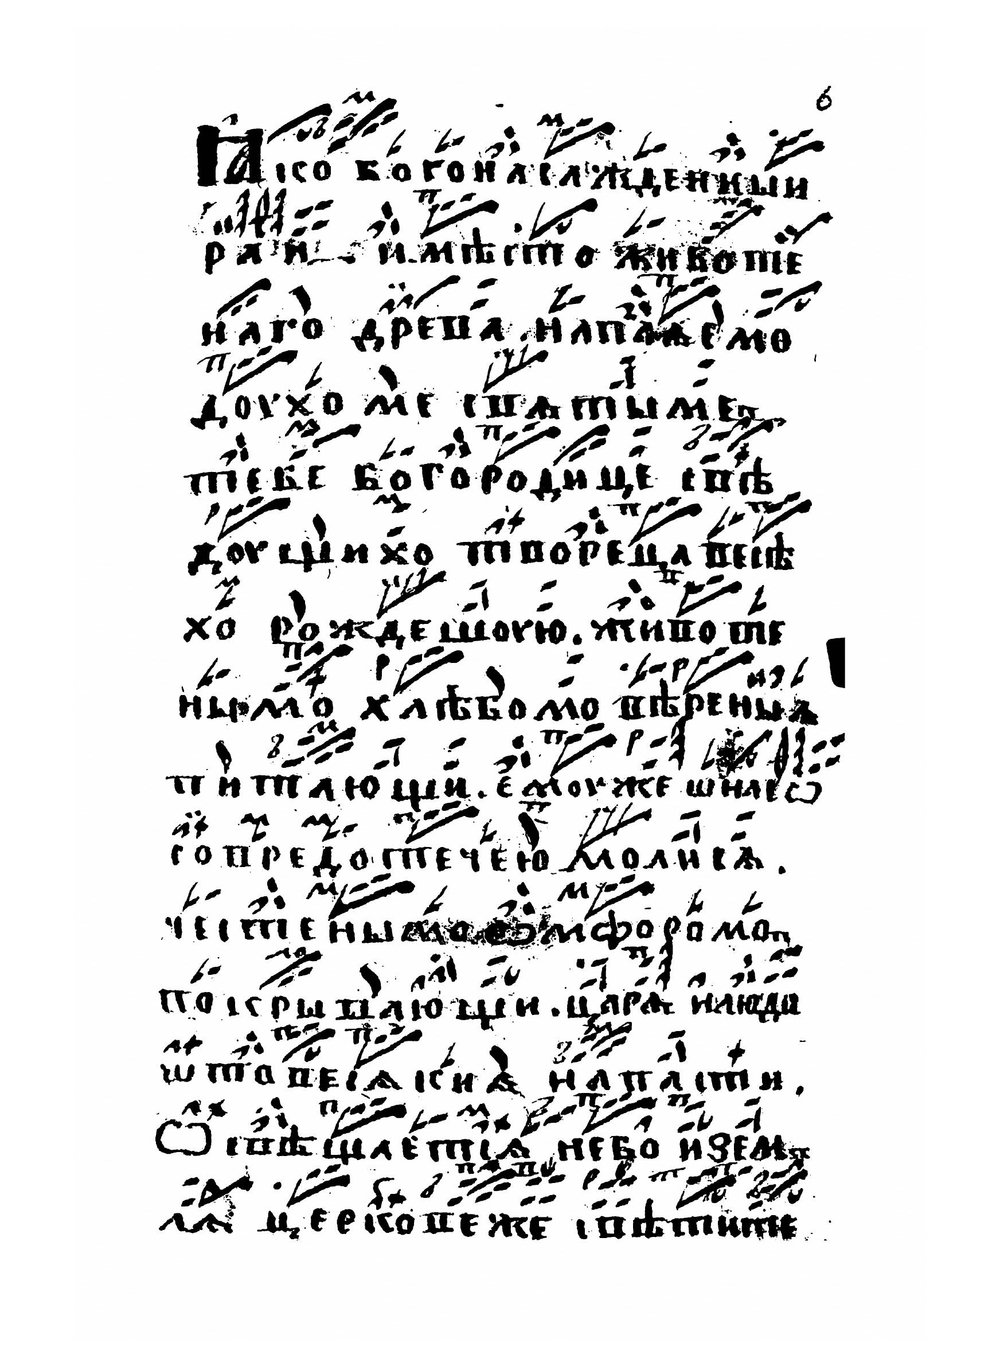 6
Ꙗко богонасажденныи
раи и мѣсто животе
наго древа напаѧемо
доухоме свѧтыме
тебе богородице свѣ
доущихо твореца весѣ
хо рождешоую. животе
нымо хлѣбомо вѣреныѧ
питающи. емоуже ш насо
сопредотечею молисѧ.
честенымо омофоромо
покрывающи. царѧ и люди
ѿ всѧкиѧ напасти.
Ѡсвѣщаетсѧ небо и зем
лѧ церковеже свѣтите